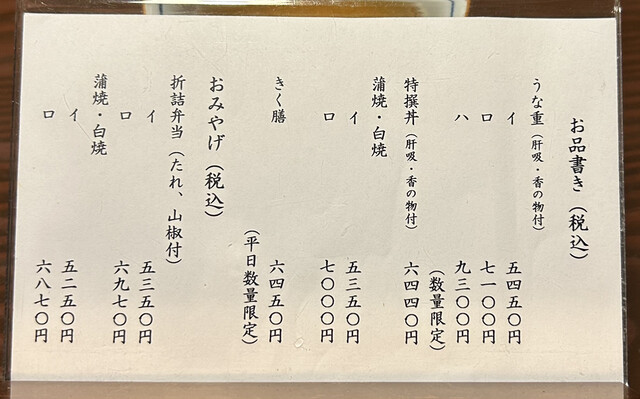 お品書き（税込）
うな重（肝吸・香の物付）
イ 五四五〇円
ロ 七一〇〇円
ハ 九三〇〇円
（数量限定）
特撰丼（肝吸・香の物付） 六四四〇円
蒲焼・白焼
イ 五三五〇円
ロ 七〇〇〇円
きく膳 六四五〇円
（平日数量限定）
おみやげ（税込）
折詰弁当（たれ、山椒付）
イ 五三五〇円
ロ 六九七〇円
蒲焼・白焼
イ 五二五〇円
ロ 六八七〇円